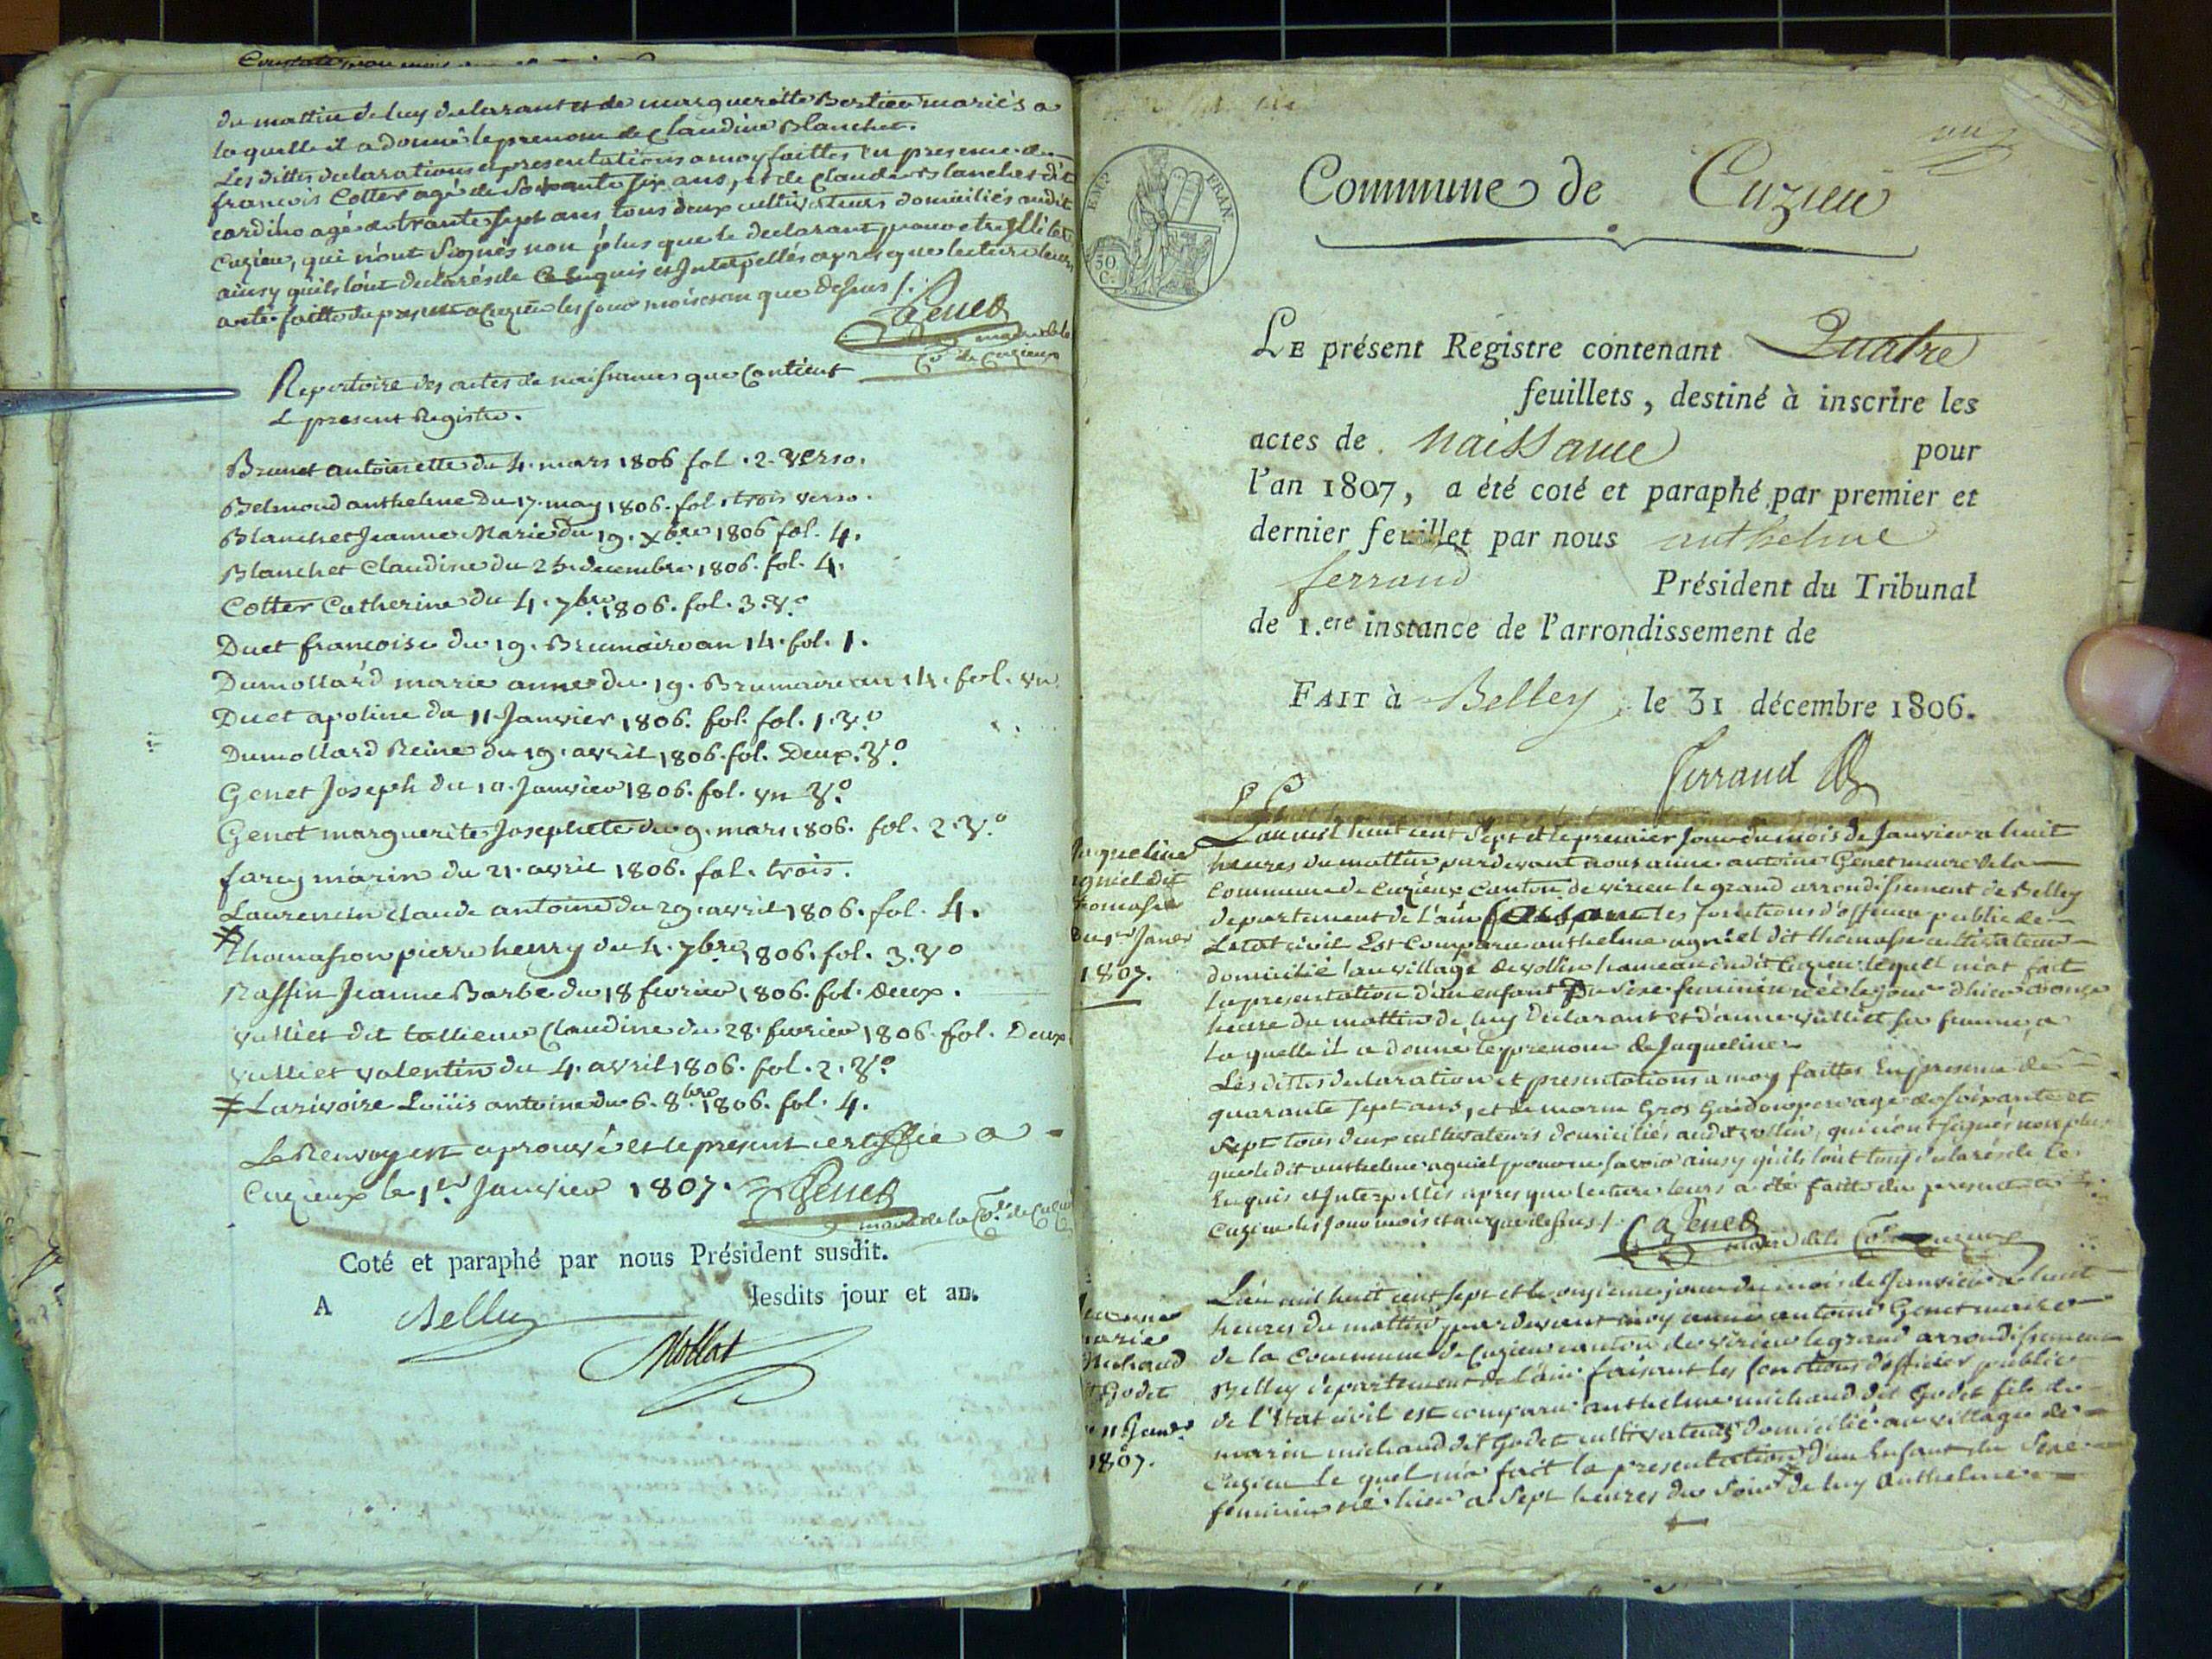 du mattin de luy declarant et de marguerette Bertier mariés a
laquelle il a donné le prenom de Claudine Blanchet.
Les dittes declarations et presentations a moy faittes En presence de
francois Cotter agé de Soixante six ans, et de Claude Blanchet dit
cardino agé de trante sept ans tous deux cultivateurs domiciliés audit
Cuzieu, qui n'ont Signés non plus que le declarant pour etre Illiteré
ainsy quils l'ont declarés de Ce Enquis et Interpellés apres que lecture leurs
a eté faitte du present a Cuzieu les jour mois et an que dessus /.
aGenet
maire de la
Co.ne de Cuzieux
Repertoire des actes de naissances que Contient
Le present Registre.
Brunet antoinette du 4. mars 1806 fol. 2. verso.
Belmond anthelme du 17. may 1806. fol. trois verso.
Blanchet Jeanne Marie du 19. xbre 1806 fol. 4.
Blanchet Claudine du 25 decembre 1806. fol. 4.
Cotter Catherine du 4. 7bre 1806. fol. 3. vo.
Duet francoise du 19. Brumaire an 14. fol. 1.
Dumollard marie anne du 19. Brumaire an 14. fol. un
Duet apoline du 11 Janvier 1806. fol. fol. 1. vo
Dumollard Reine du 19. avril 1806. fol. Deux. vo
Genet Joseph du 10. Janvier 1806. fol. un vo
Genet marguerite Josephete du 9. mars 1806. fol. 2. vo
farcy marin du 21. avril 1806. fol. trois.
Laurencin claude antoine du 29. avril 1806. fol. 4.
Thomasson pierre henry du 4. 7bre 1806. fol. 3. vo
Raffin Jeanne Barbe du 18 fevrier 1806. fol. deux.
vulliet dit tallieur Claudine du 28. fevrier 1806. fol. Deux
vulliet valentin du 4. avril 1806. fol. 2. vo
≠ Larivoire Loüis antoine du 6. 8bre 1806. fol. 4.
Le Renvoy est aprouvé et le present certiffié a
Cuzieux le 1er Janvier 1807.
aGenet
maire de la Co.ne de Cuzieu
Coté et paraphé par nous Président susdit.
A Belley lesdits jour et an.
Mollat
un
EMP. FRAN.
50 C.
Commune de Cuzieu
LE présent Registre contenant Quatre
feuillets, destiné à inscrire les
actes de naissance pour
l'an 1807, a été coté et paraphé par premier et
dernier feuillet par nous anthelme
ferrand Président du Tribunal
de 1.ere instance de l'arrondissement de
FAIT à Belley, le 31 décembre 1806.
Ferrand
Jaqueline
agniel dit
thomasse
du 1er Janer
1807.
L'an mil huit cent Sept et le premier Jour du mois de Janvier a huit
heures du mattin pardevant nous anne antoine Genet maire de la
Commune de Cuzieux Canton de virieu le grand arrondissement de Belley
departement de l'ain faisant les fonctions d'officier public de
Letat civil Est Comparu anthelme agniel dit thomasse cultivateur
domicilié au village de vollin hameau dudit Cuzieu lequel m'at fait
la presentation d'un enfant Du sexe feminin née le jour d'hier a onze
heure du mattin de luy declarant et d'anne vulliet sa femme, a
laquelle il a donné le prenom de Jaqueline
Les dittes declaration et presentations a moy faittes En presence de
quarante sept ans, et de marin Gros agé de soixante et
Sept tous deux cultivateurs domiciliés audit vollin, qui n'ont signés non plus
que ledit anthelme agniel pour ne savoir ainsy quils l'ont tous declarés de Ce
Enquis et Interpellés apres que lecture leurs a eté faitte du present a
Cuzieu les jour mois et an que dessus /.
aGenet
maire de la Co.ne Cuzieux
Jeanne
marie
Michaud
dit Godet
du 11 Janer
1807.
L'an mil huit cent sept et le onzieme jour du mois de Janvier a huit
heures du mattin pardevant moy anne antoine Genet maire
de la Commune de Cuzieu canton de virieu le grand arrondissement
Belley departement de l'ain faisant les fonctions d'officier public
de l'Etat civil est comparu anthelme michaud dit Godet fils de
marin michaud dit Godet cultivateur domicilié au village de
Cuzieu le quel m'a fait la presentation d'un Enfant du Sexe
feminin né hier a Sept heures du Soir de luy Anthelme